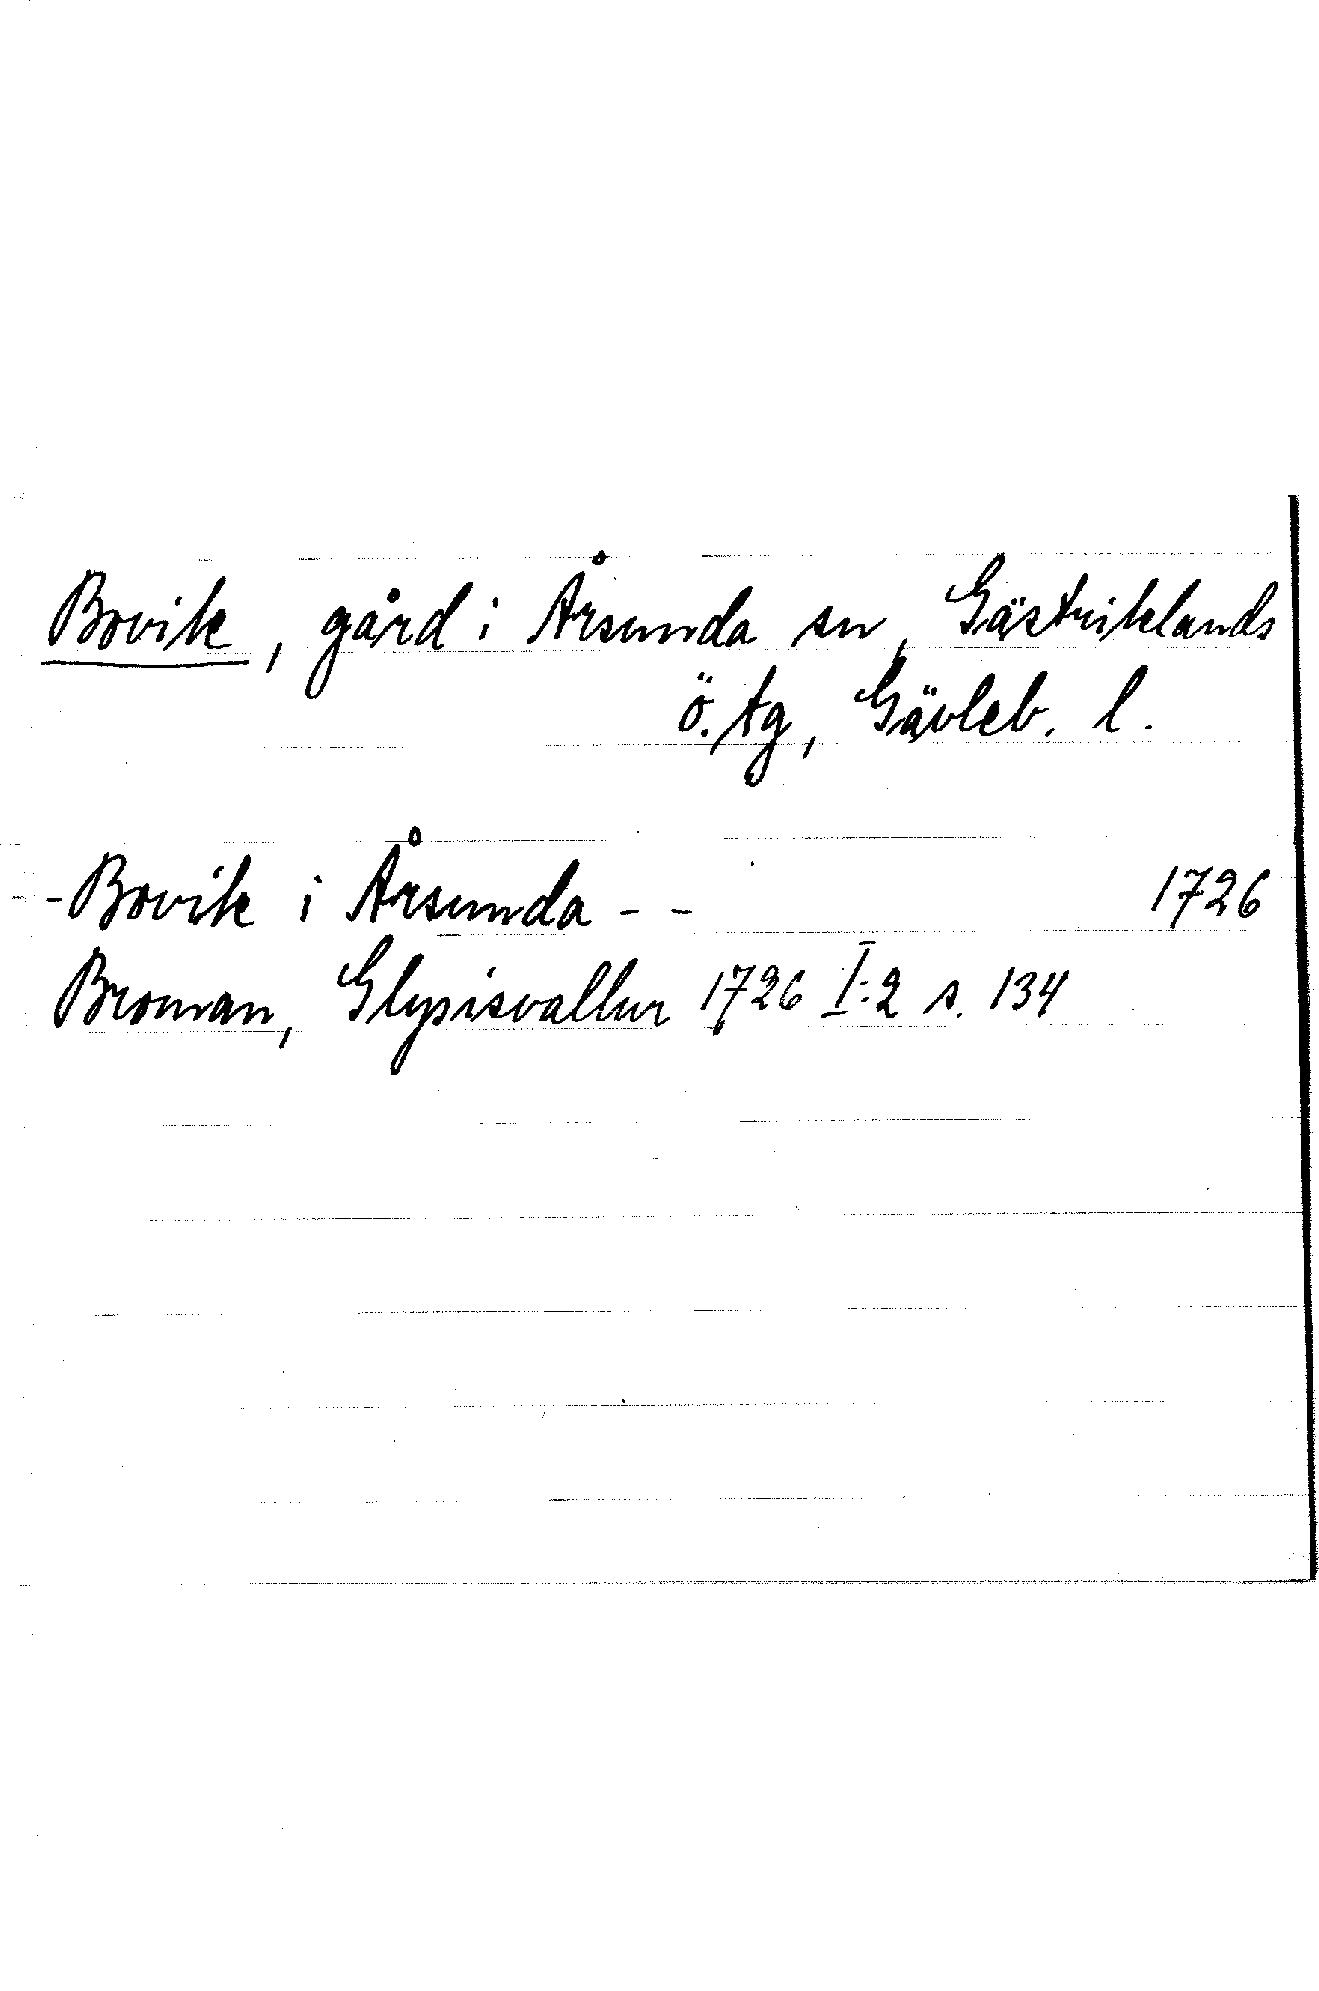 Bovik, gård i Årsunda sn, Gästriklands
ö. tg, Gävleb. l.
- Bovik i Årsunda - - 1726
Broman, Glysisvallur 1726 I:2 s. 134